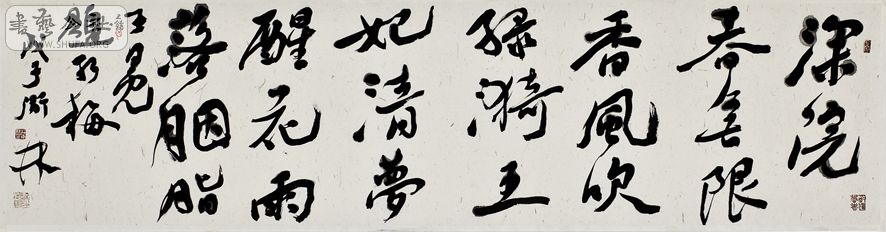 深院
春無限
香風吹
綠漪玉
妃清夢
醒花雨
落胭脂
王冕
紅梅
戊子
書藝公社
WWW.SHUFA.ORG